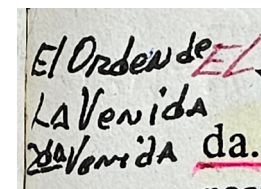 El Orden de EL
LA Venida
2da Venida da.